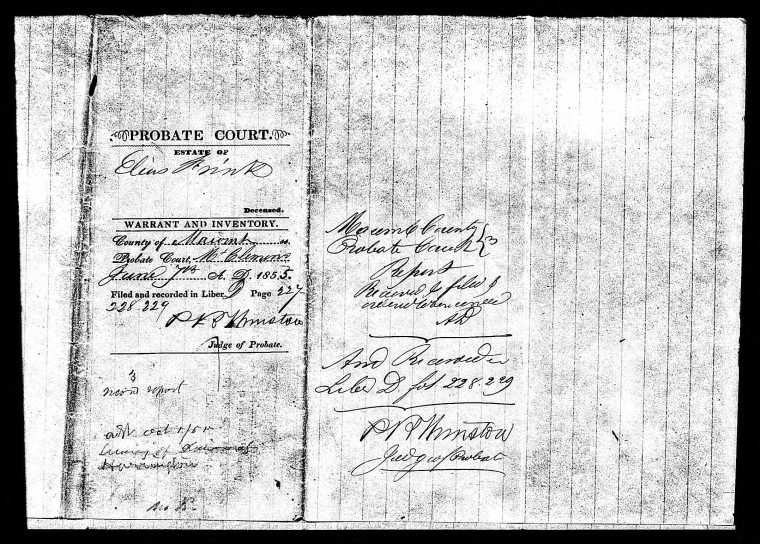 PROBATE COURT.
ESTATE OF
Elias Frink
Deceased.
WARRANT AND INVENTORY.
County of Macomb ss.
Probate Court, Mt Clemens
June 7th A. D. 1855.
Filed and recorded in Liber D Page 227
228 229
P N T Winstow
Judge of Probate.
3
report
Oct
No
Macomb County
Probate Court } 3
Report
Received & filed &
AD
And Recorded in
Liber D. fol 228.229
P N T Winstow
Judge of Probate